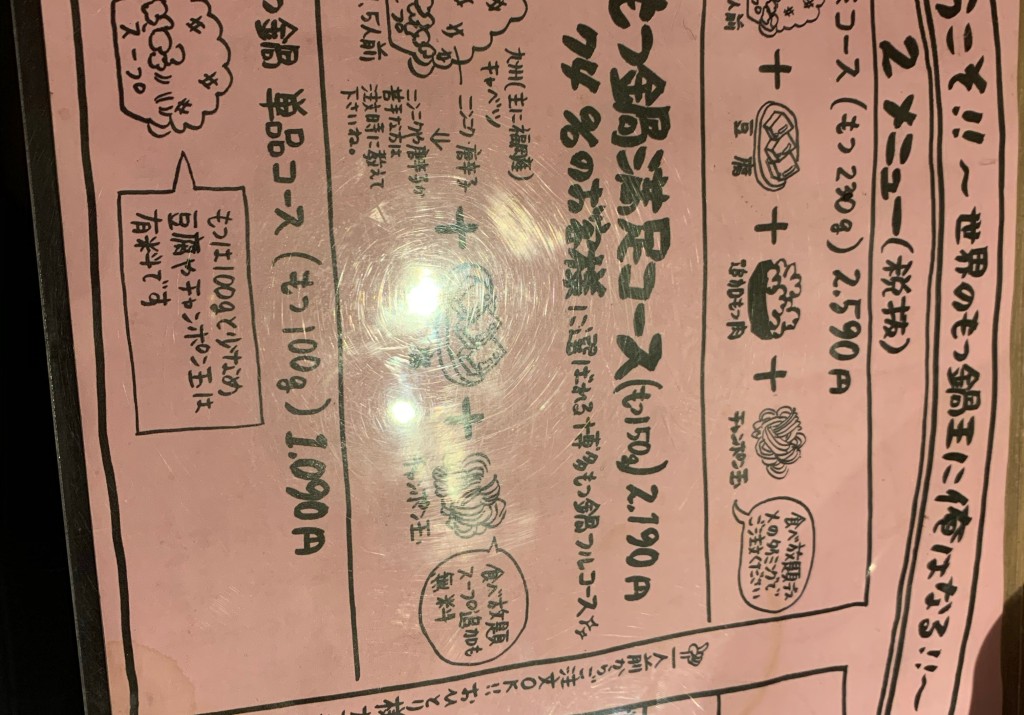 うこそ!! ～世界のもつ鍋王に俺はなる!!～
2メニュー(税抜)
コース(もつ200g) 2.590円
人前
+
豆腐
+
+
チャンポン玉
食べ放題
ご注文ください
もつ鍋満足コース(もつ150g) 2.190円
74%のお客様に選ばれる博多もつ鍋フルコース
九州(主に福岡産)
キャベツ
ニンニク・唐辛子
苦手な方は
注文時に教えて
下さいね。
.5人前
+
+
チャンポン玉
食べ放題
スープの追加も
無料
つ鍋 単品コース(もつ100g) 1.090円
スープ
もつは100gと少なめ
豆腐やチャンポン玉は
有料です
一人前からご注文OK!! おひとり様